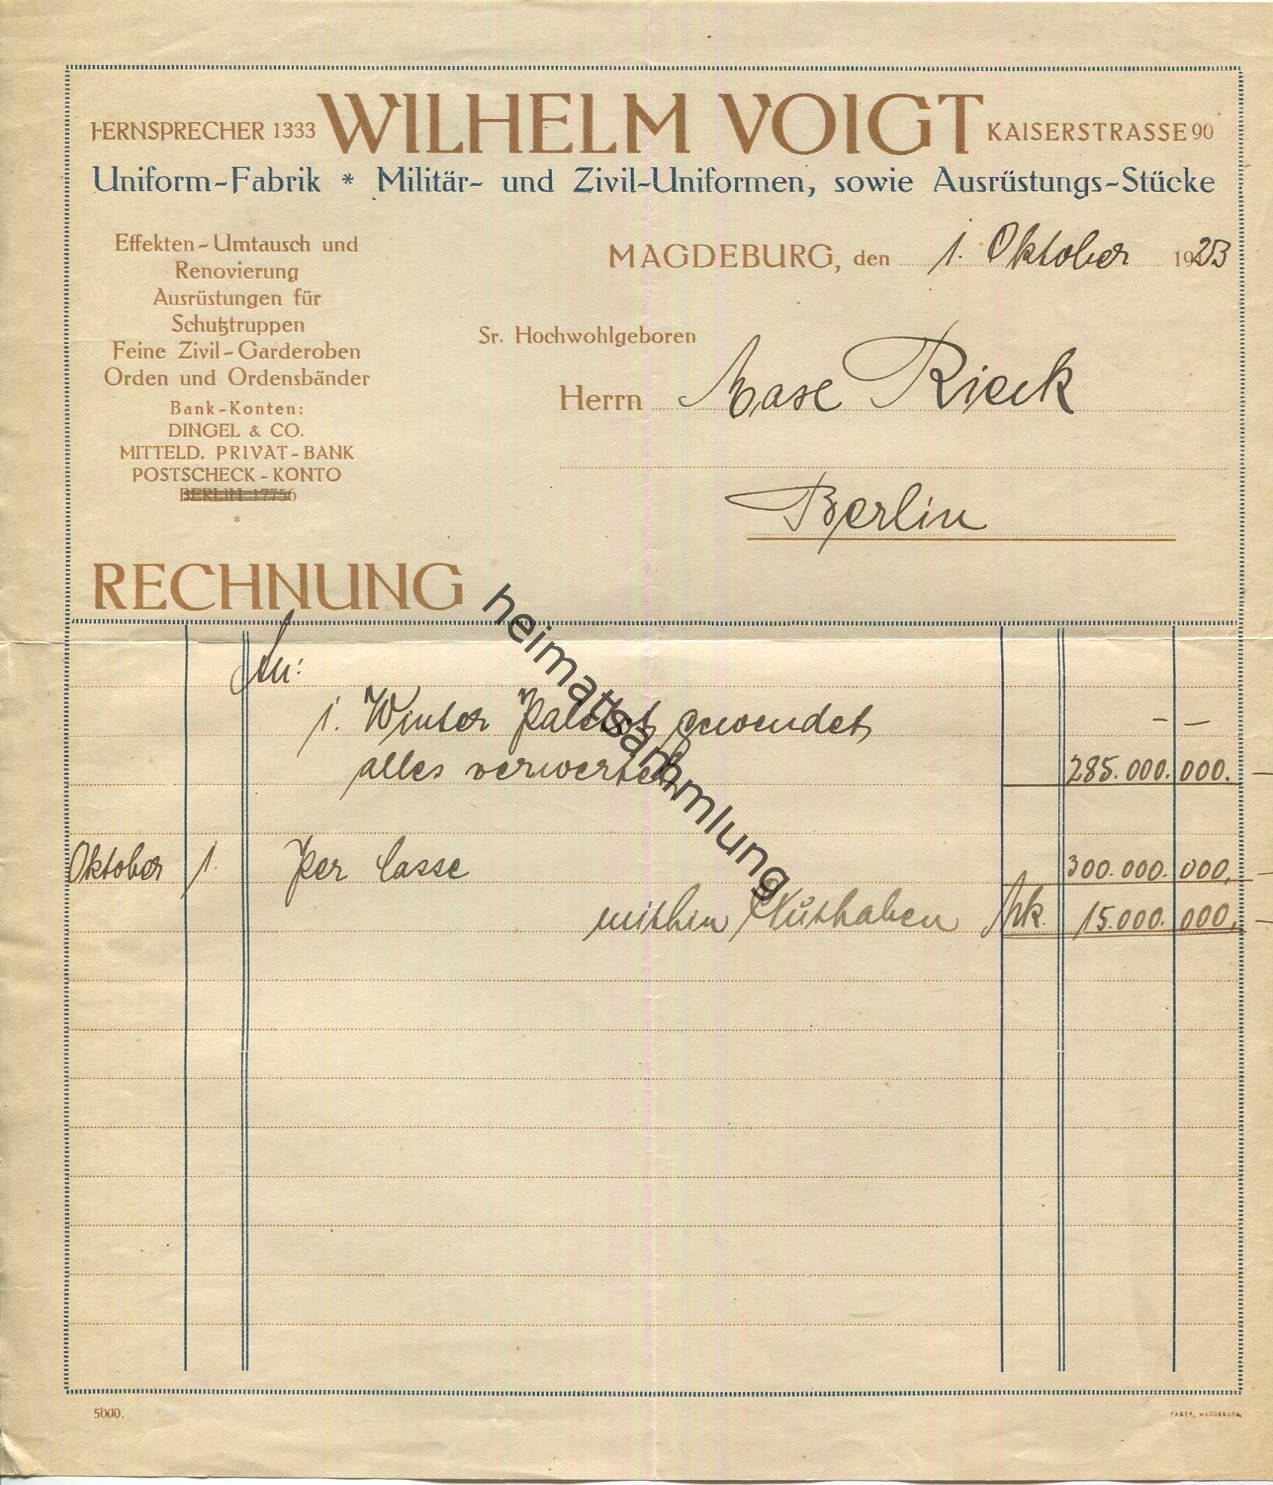 FERNSPRECHER 1333 WILHELM VOIGT KAISERSTRASSE 90
Uniform-Fabrik * Militär- und Zivil-Uniformen, sowie Ausrüstungs-Stücke
Effekten-Umtausch und
Renovierung
Ausrüstungen für
Schutztruppen
Feine Zivil-Garderoben
Orden und Ordensbänder
Bank-Konten:
DINGEL & CO.
MITTELD. PRIVAT-BANK
POSTSCHECK-KONTO
BERLIN 17756
*
MAGDEBURG, den 1. Oktober 1923
Sr. Hochwohlgeboren
Herrn Rieck
Berlin
RECHNUNG
An:
1. Winter Paletot gewendet — —
alles verwertet 285.000.000.—
Oktober 1. Per Casse 300.000.000,—
mithin Guthaben Mk. 15.000.000,—
heimatsammlung
5000.
FABER, MAGDEBURG.